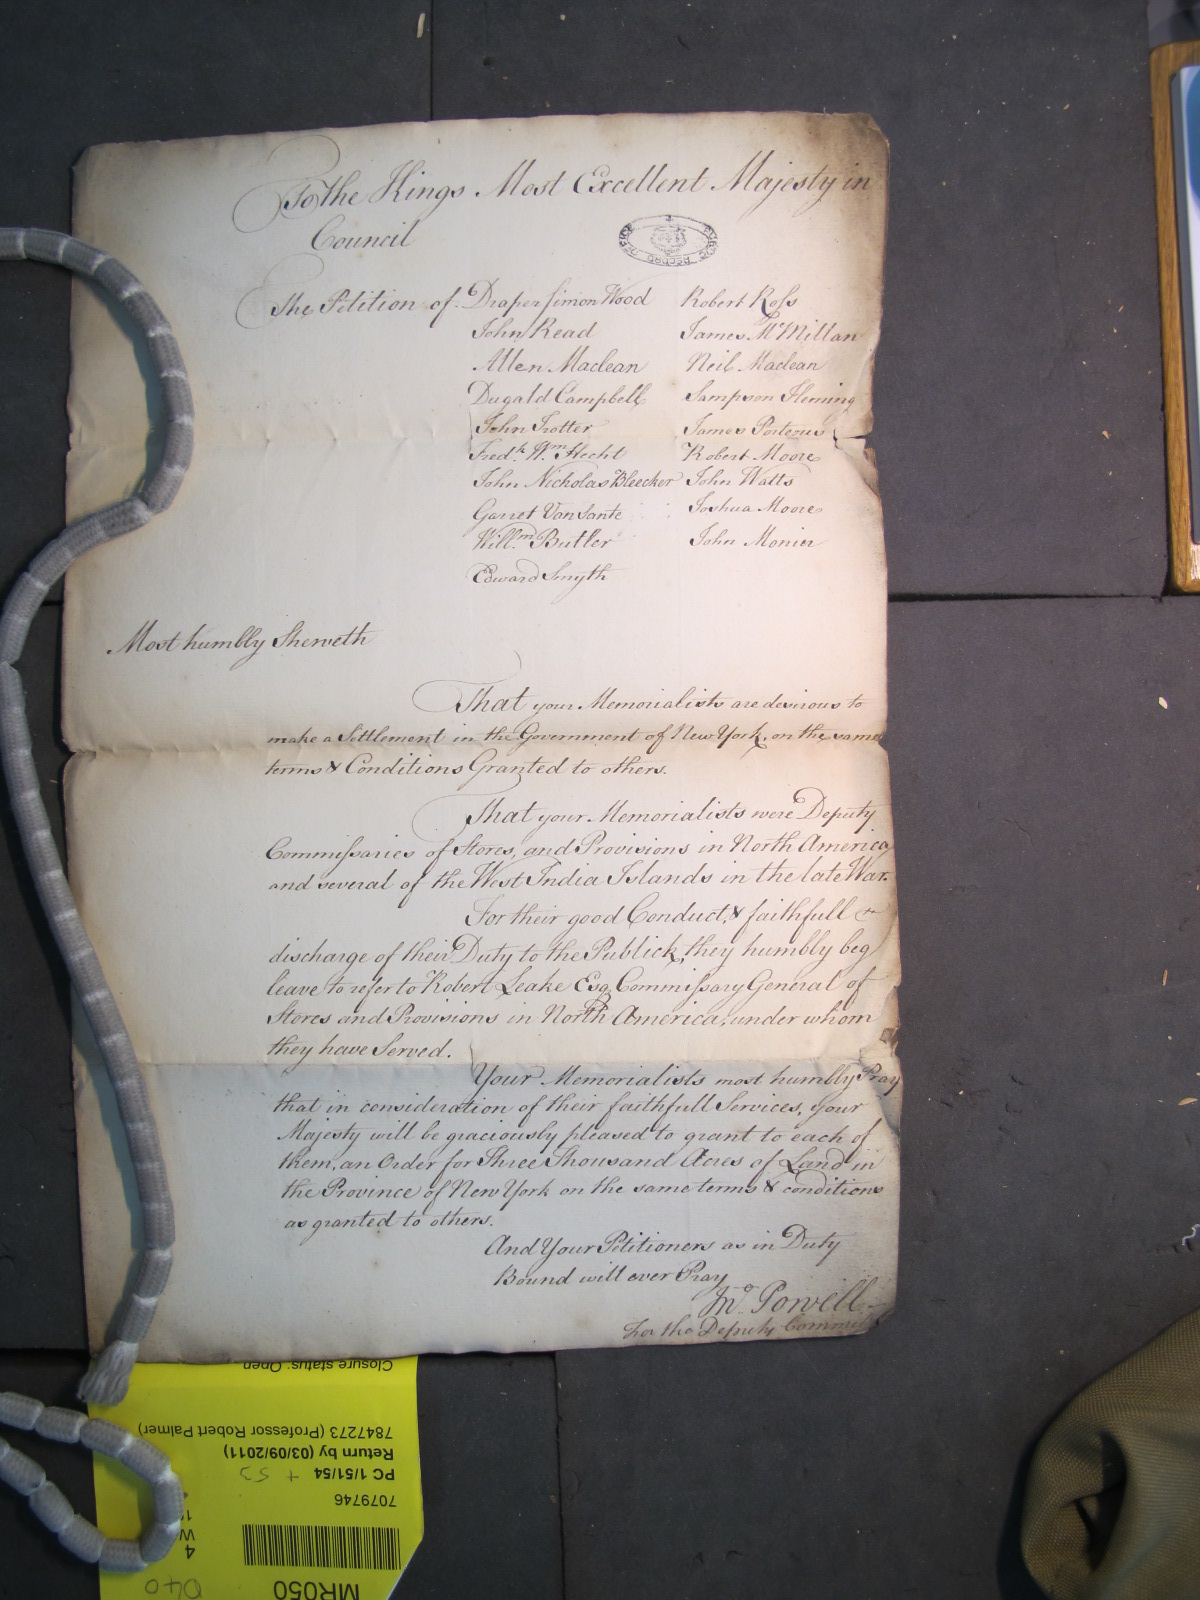 To the Kings Most Excellent Majesty in
Council
PUBLIC RECORD OFFICE
The Petition of Draper Simon Wood Robert Ross
John Read James McMillan
Allen Maclean Neil Maclean
Dugald Campbell Sampson Fleming
John Trotter James Porteous
Fredk. Wm. Hecht Robert Moore
John Nicholas Bleecker John Watts
Garret Van Sante Joshua Moore
Willm. Butler John Monier
Edward Smyth
Most humbly Sheweth
That your Memorialists are desirous to
make a Settlement in the Government of New York, on the same
terms & Conditions Granted to others.
That your Memorialists were Deputy
Commissaries of Stores, and Provisions in North America
and several of the West India Islands in the late War.
For their good Conduct, & faithfull
discharge of their Duty to the Publick, they humbly beg
leave to refer to Robert Leake Esq. Commissary General of
Stores and Provisions in North America, under whom
they have Served.
Your Memorialists most humbly Pray
that in consideration of their faithfull Services, your
Majesty will be graciously pleased to grant to each of
them, an Order for Three Thousand Acres of Land in
the Province of New York on the same terms & conditions
as granted to others.
And Your Petitioners as in Duty
Bound will ever Pray
Jno. Powell
For the Deputy
Closure status: Open
7847273 (Professor Robert Palmer)
Return by (03/09/2011)
PC 1/51/54 + 53
7079746
4
W
MR050
040